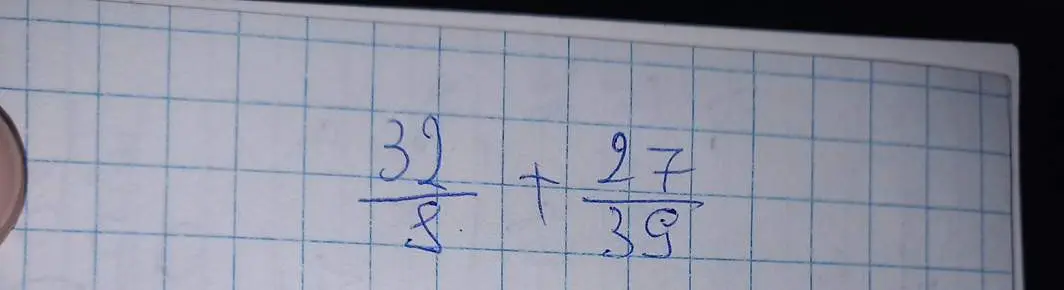 32/8 + 27/39